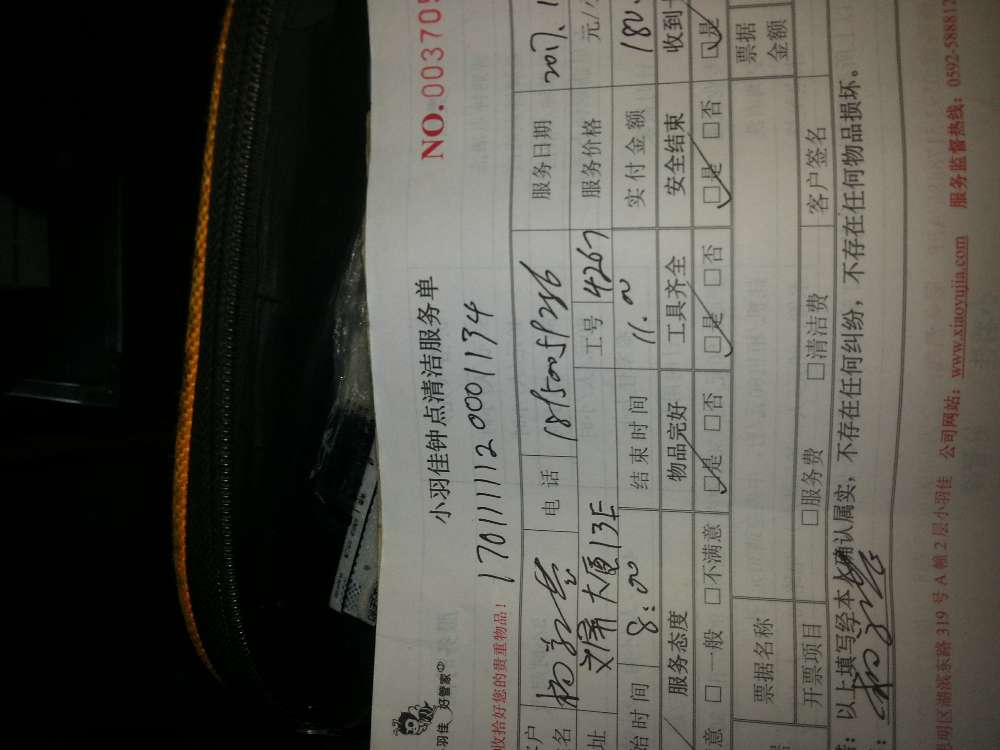 羽佳 好管家
小羽佳钟点清洁服务单
NO.003705
收拾好您的贵重物品！
170111120001134
电话
服务日期 2017.1
址 大厦13E 工号 4267 服务价格 元/
始时间 8:00 结束时间 11.00 实付金额 180.
服务态度 物品完好 工具齐全 安全结束 收到
意 □一般 □不满意 □是 □否 □是 □否 □是 □否 □是
票据名称 票据金额
开票项目 □服务费 □清洁费 客户签名
：以上填写经本人确认属实，不存在任何纠纷，不存在任何物品损坏。
明区湖滨东路 319 号 A 幢 2 层小羽佳 公司网站：www.xiaoyujia.com 服务监督热线：0592-588812